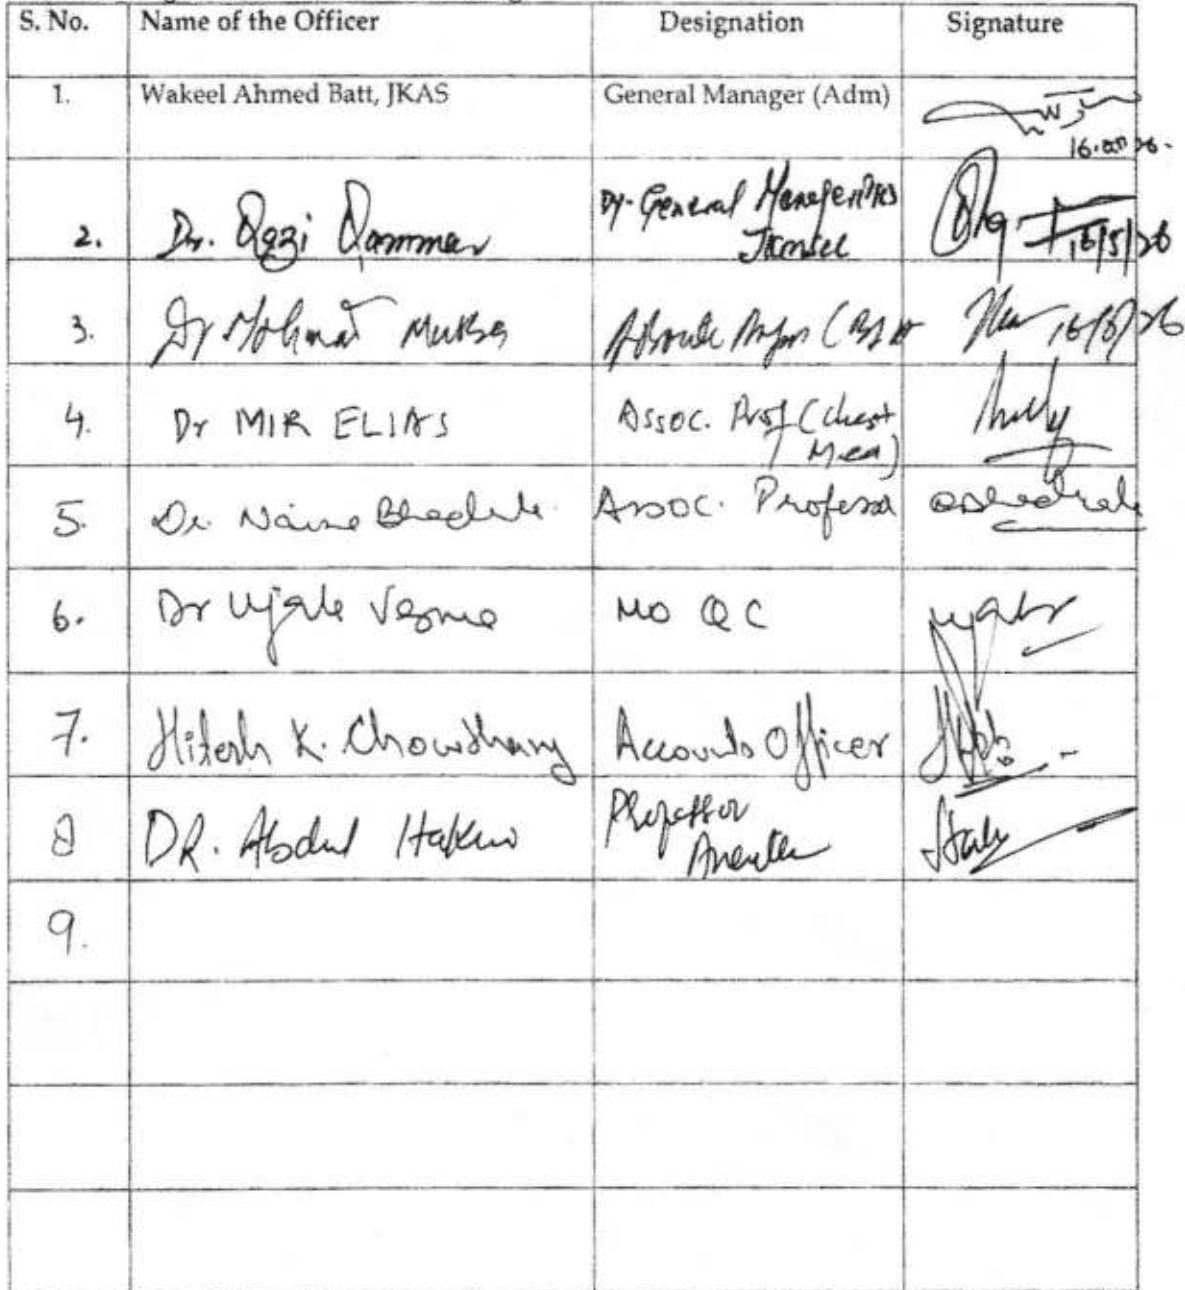 S. No. Name of the Officer Designation Signature
1. Wakeel Ahmed Batt, JKAS General Manager (Adm)
16.05.26.
2. Dr. Qazi Qammar Dy. General Manager
16/5/26
3. Dr Mohmad 16/5/26
4. Dr MIR ELIAS Assoc. Prof (Chest
Med)
5. Dr. Assoc. Professor
6. Dr Ujala Verma MO QC
7. Hitesh K. Chowdhary Accounts Officer
8 DR. Abdul Hakim Professor
9.